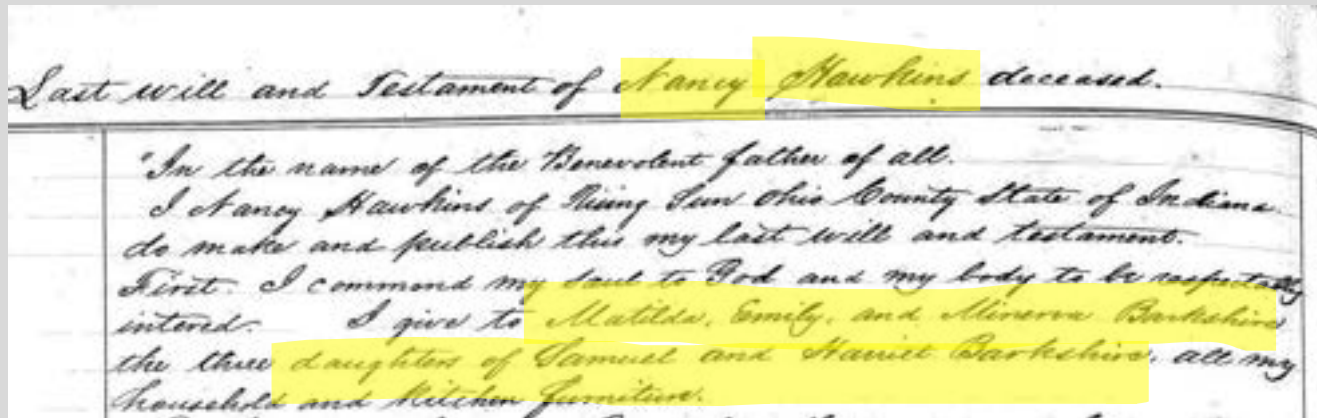 Last will and Testament of Nancy Hawkins deceased.
"In the name of the Benevolent father of all.
I Nancy Hawkins of Rising Sun Ohio County State of Indiana.
do make and publish this my last will and testament.
First. I commend my soul to God and my body to be respectally
intered. I give to Matilda, Emily, and Minerva Barkshire
the three daughters of Samuel and Harriet Barkshire, all my
household and Kitchen furniture.